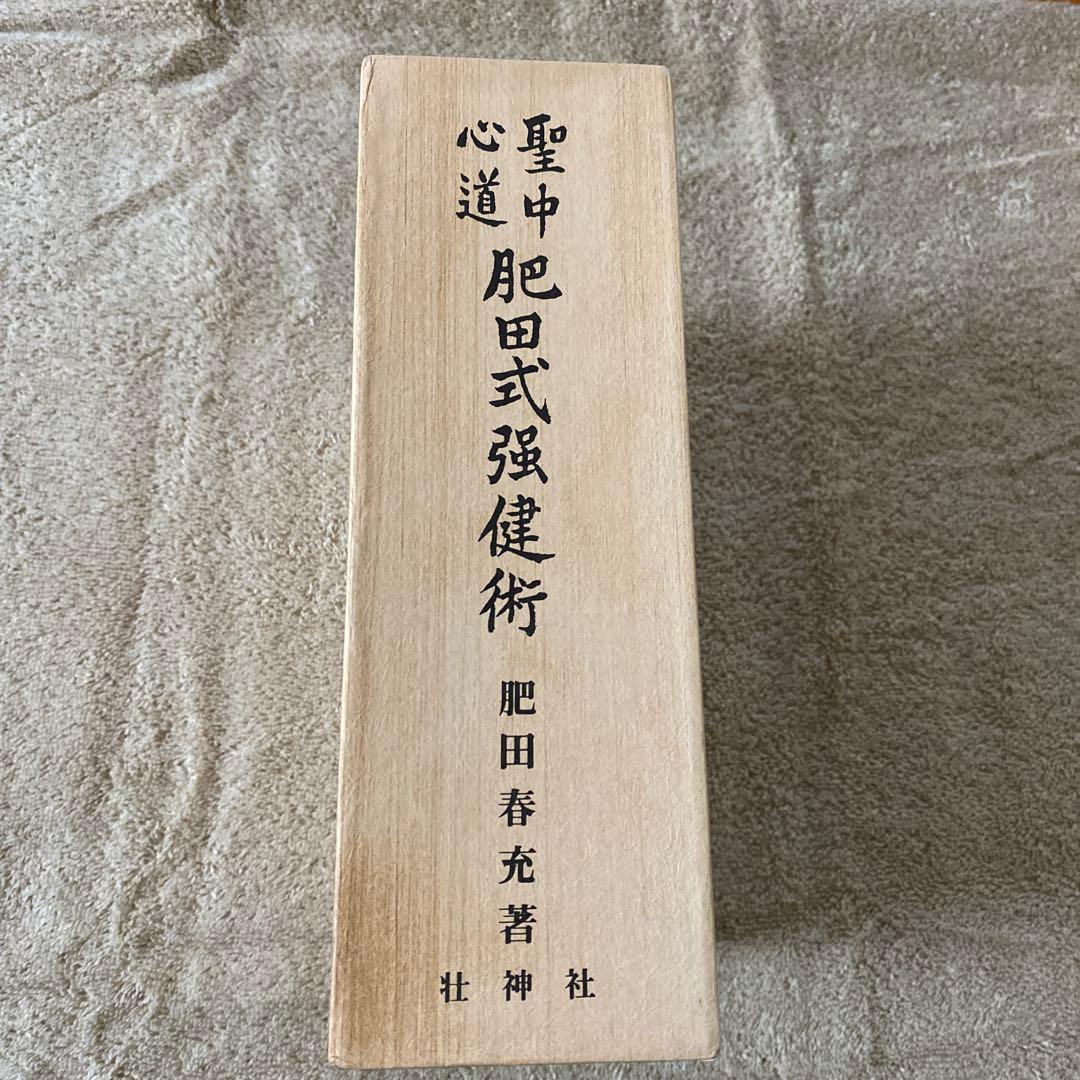 聖中
心道
肥田式强健術
肥田春充著
壮神社